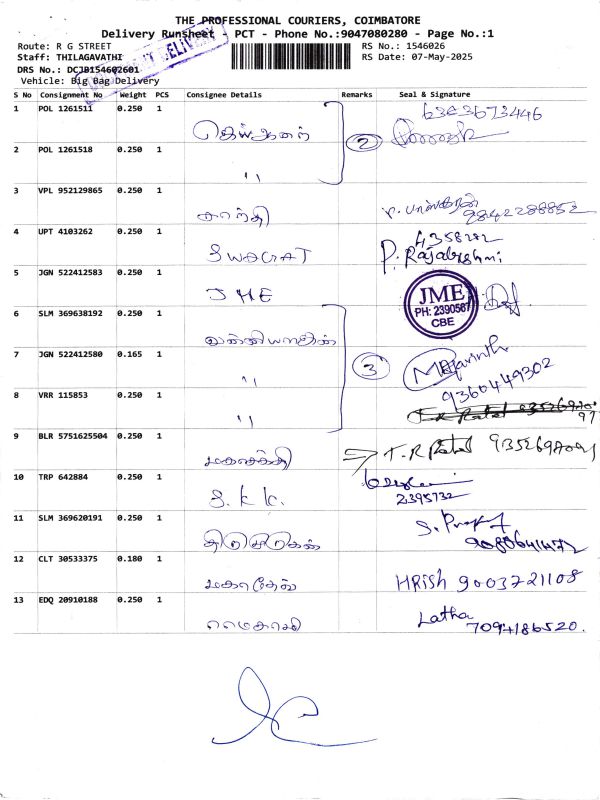 THE PROFESSIONAL COURIERS, COIMBATORE
Delivery Runsheet - PCT - Phone No.:9047080280 - Page No.:1
Route: R G STREET RS No.: 1546026
Staff: THILAGAVATHI RS Date: 07-May-2025
DRS No.: DCJB154602601
Vehicle: Big Bag Delivery
DELIVERY
S No Consignment No Weight PCS Consignee Details Remarks Seal & Signature
1 POL 1261511 0.250 1
2
2 POL 1261518 0.250 1 "
3 VPL 952129865 0.250 1 காந்தி 9842288852
4 UPT 4103262 0.250 1 4358272
P. Rajalakshmi
5 JGN 522412583 0.250 1 JME JME
PH: 2390567
CBE
6 SLM 369638192 0.250 1
7 JGN 522412580 0.165 1 " 3
9360449302
8 VRR 115853 0.250 1 "
97
9 BLR 5751625504 0.250 1 மகாசக்தி T.R Patel
10 TRP 642884 0.250 1 S.K.K. 2395732
11 SLM 369620191 0.250 1
12 CLT 30533375 0.180 1 HRish 9003721108
13 EDQ 20910188 0.250 1 Latha
7094186520.